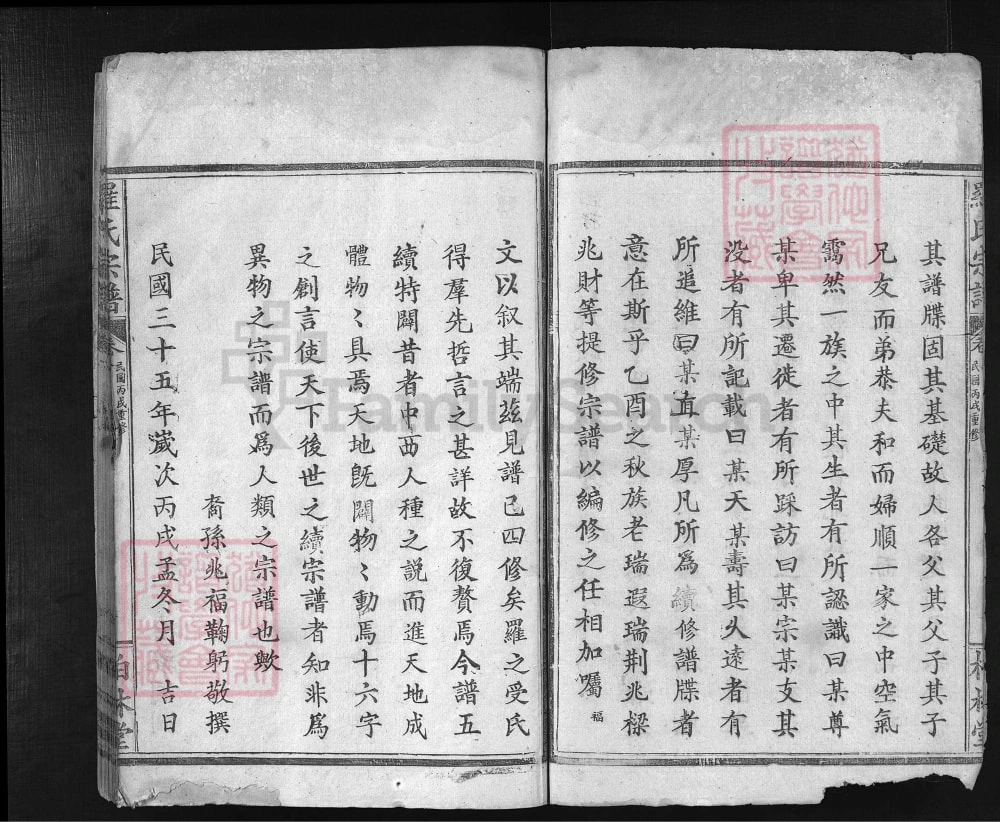 其譜牒固其基礎故人各父其父子其子
兄友而弟恭夫和而婦順一家之中空氣
靄然一族之中其生者有所認識曰某尊
某卑其遷徙者有所踩訪曰某宗某支其
没者有所記載曰某夭某壽其久遠者有
所追維曰某直某厚凡所為續修譜牒者
意在斯乎乙酉之秋族老瑞遐瑞荆兆樑
兆財等提修宗譜以編修之任相加囑福
文以叙其端茲見譜已四修矣羅之受氏
得羣先哲言之甚詳故不復贅焉今譜五
續特闢昔者中西人種之説而進天地成
體物〻具焉天地既闢物〻動焉十六字
之創言使天下後世之續宗譜者知非為
異物之宗譜而為人類之宗譜也歟
裔孫兆福鞠躬敬撰
民國三十五年嵗次丙戌孟冬月 吉日
羅氏宗譜
民國丙戌重修
柏林堂
FamilySearch